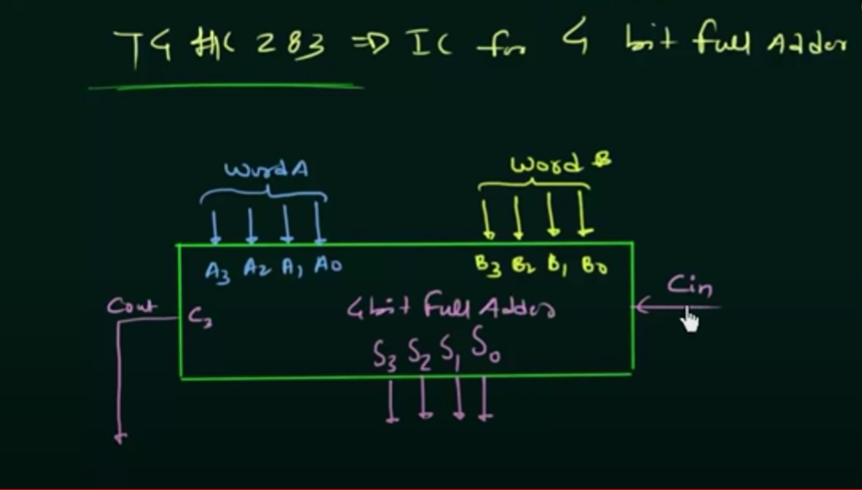 74 HC 283 => IC for 4 bit full Adder
Word A
Word B
A3 A2 A1 A0
B3 B2 B1 B0
Cin
Cout
C3
4 bit Full Adder
S3 S2 S1 S0